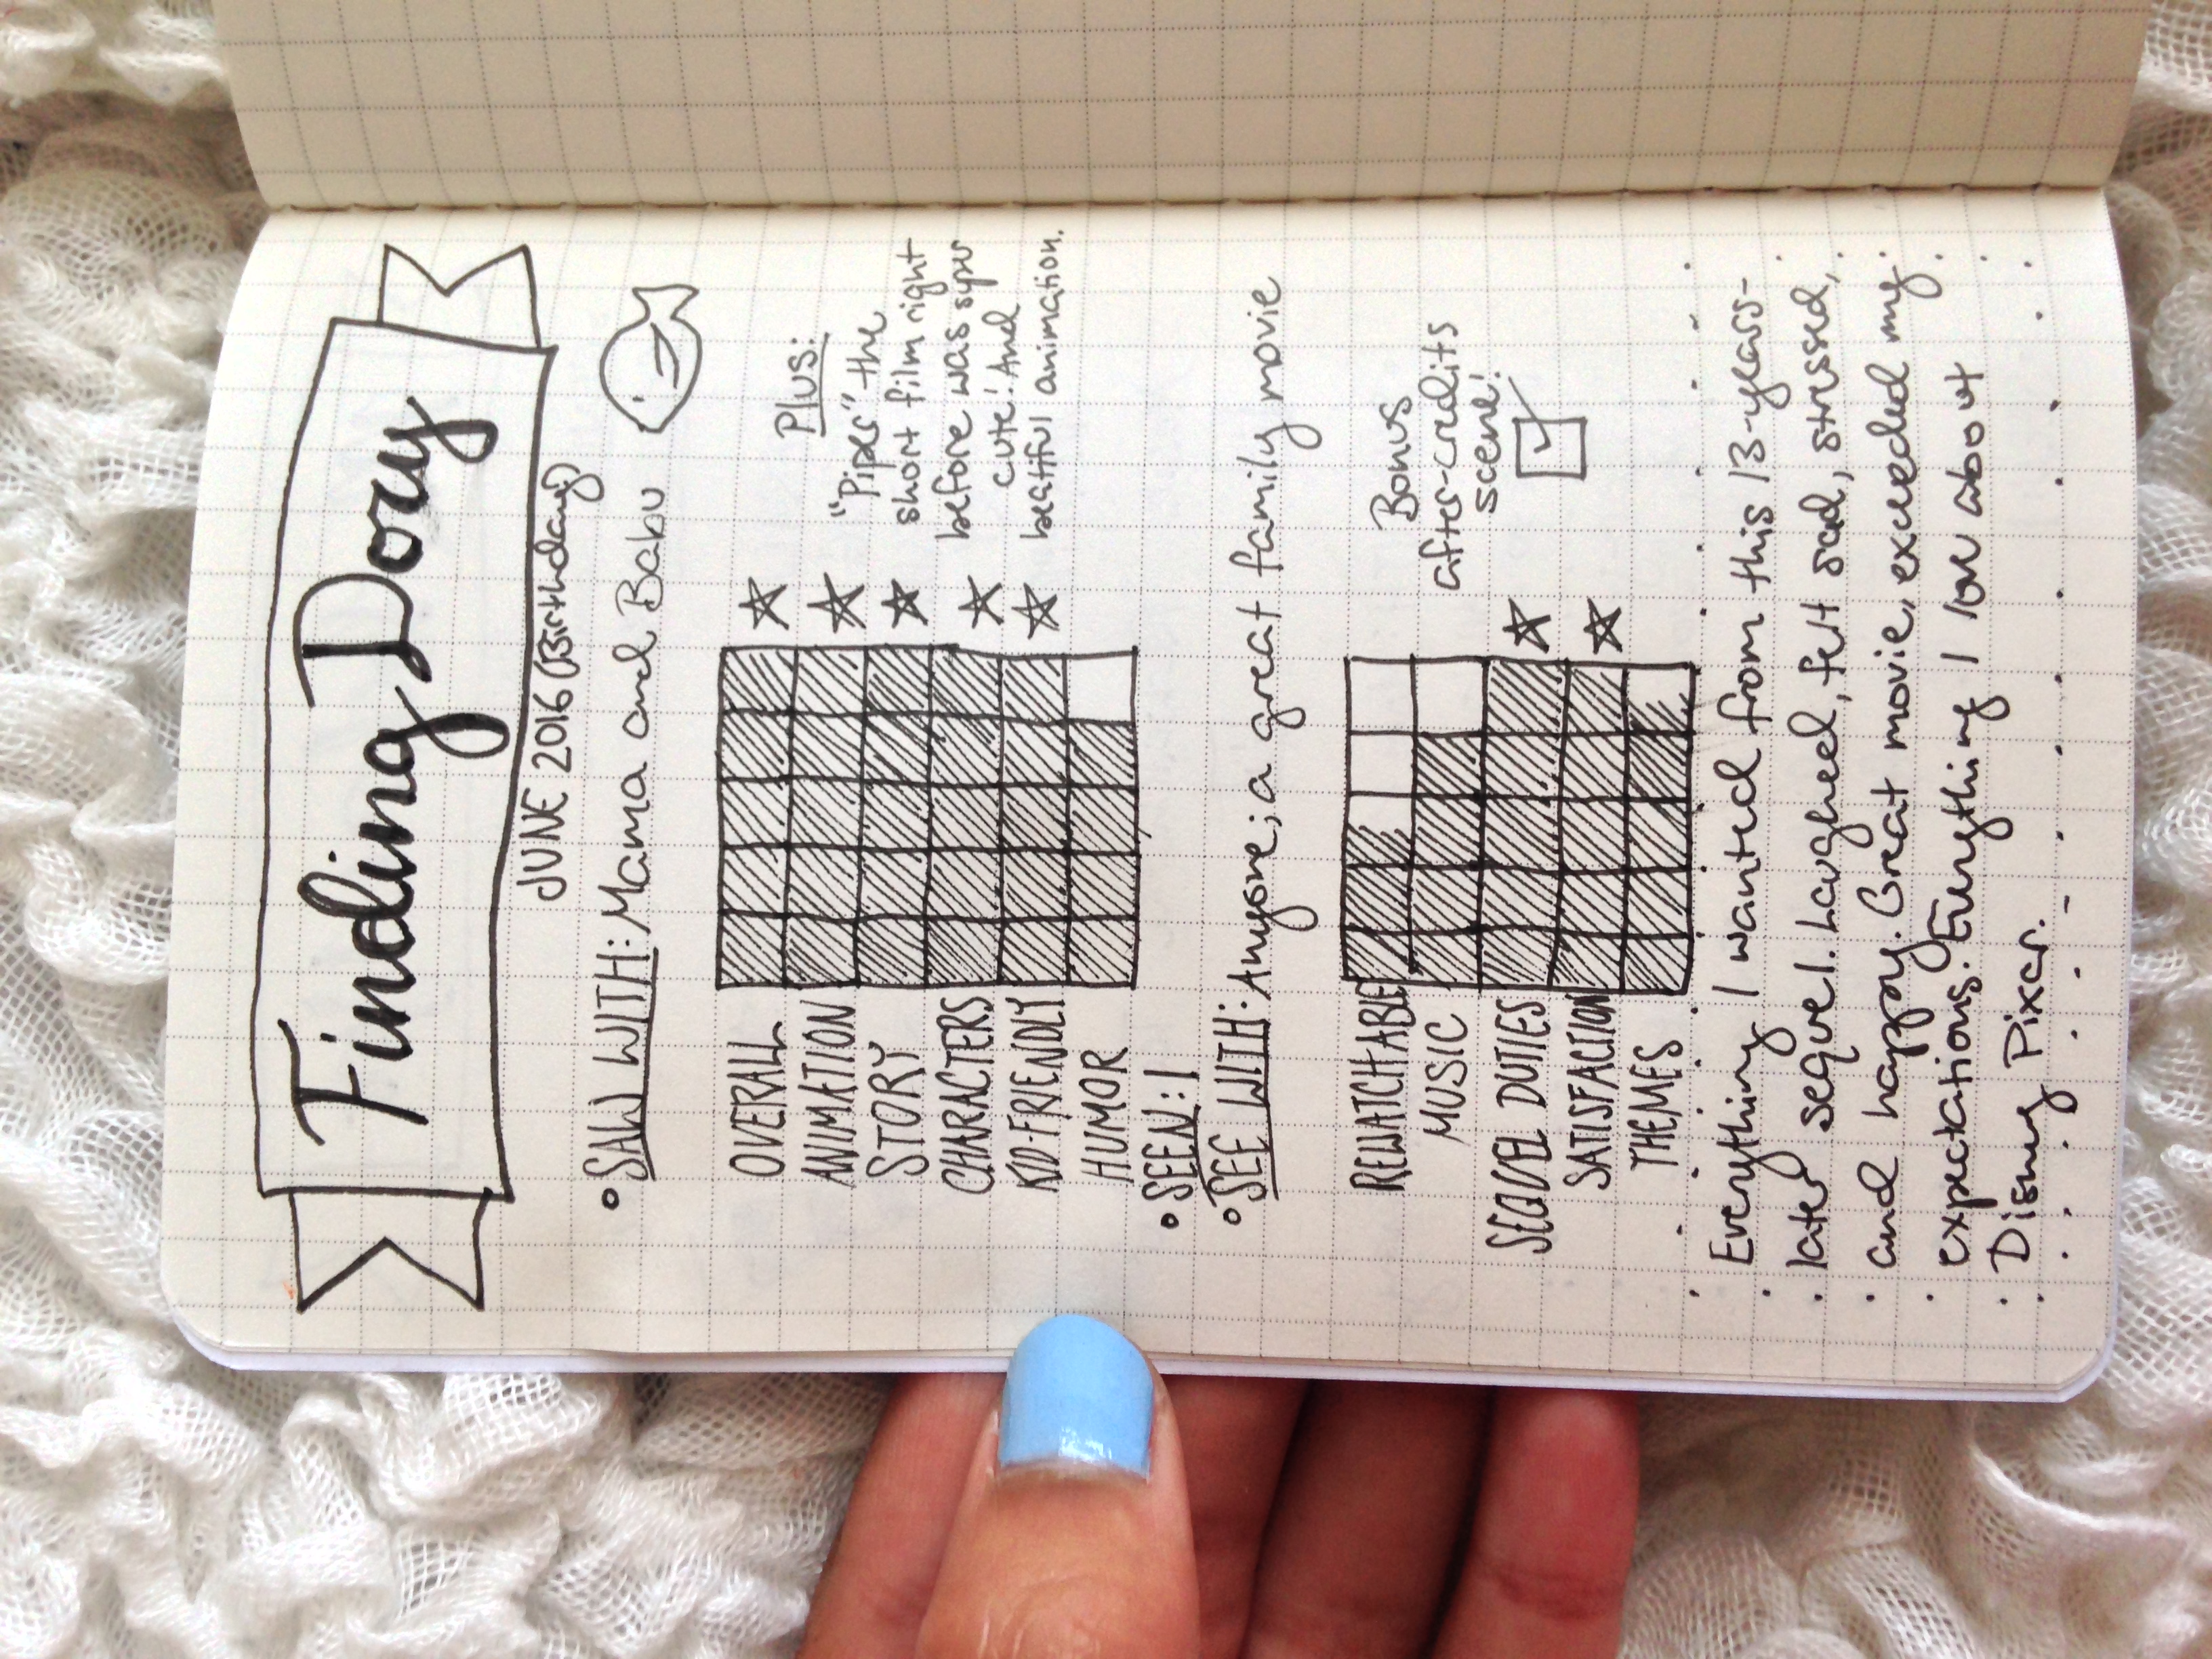 Finding Dory
JUNE 2016 (Birthday!)
• SAW WITH: Mama and Babu
OVERALL
ANIMATION
STORY
CHARACTERS
KID-FRIENDLY
HUMOR
Plus:
"Piper" the
short film right
before was super
cute! And
beatiful animation.
• SEEN: 1
• SEE WITH: Anyone; a great family movie
REWATCHABLE
MUSIC
SEQUEL DUTIES
SATISFACTION
THEMES
Bonus
after-credits
scene!
Everything I wanted from this 13-years-
later sequel. Laughed, felt sad, stressed,
and happy. Great movie, exceeded my
expectations. Everything I love about
Disney Pixar.